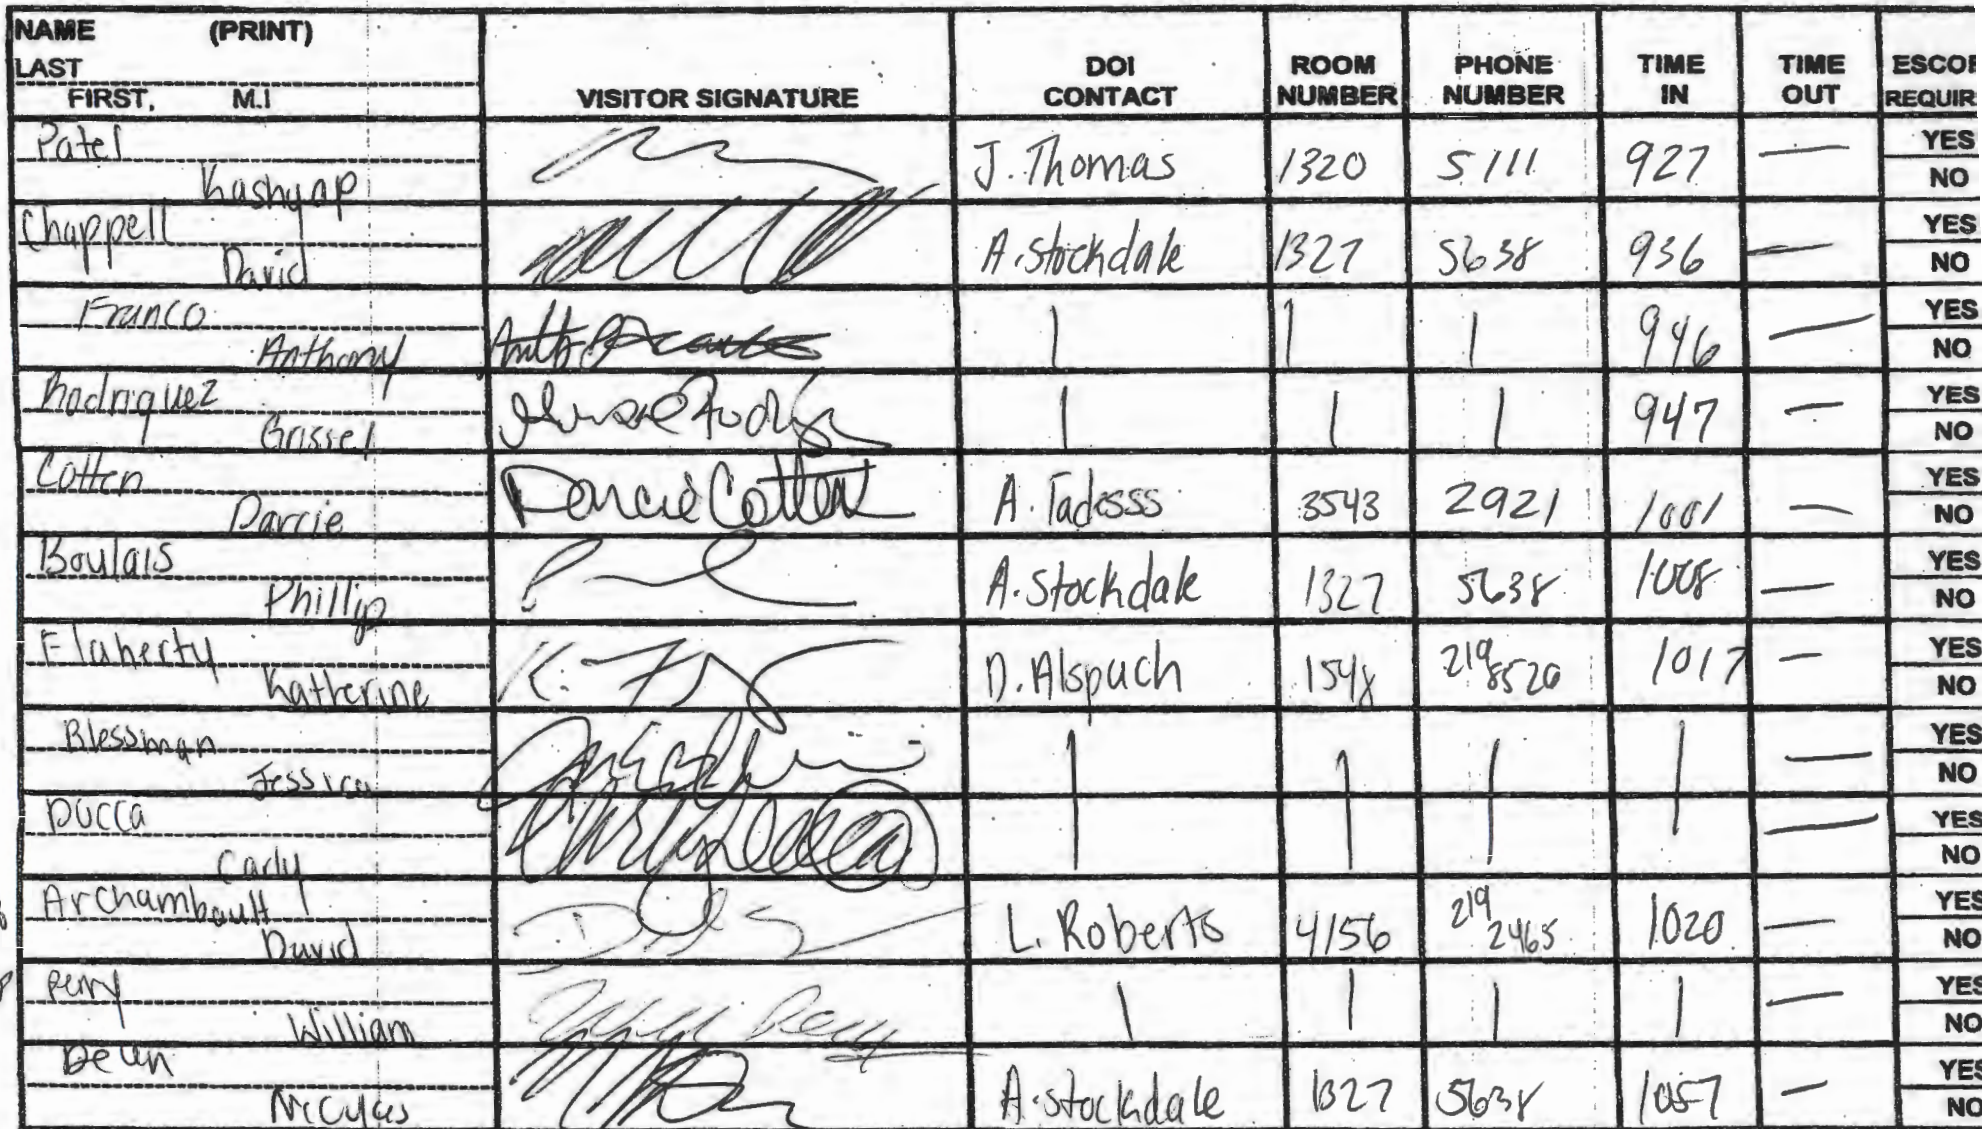 NAME (PRINT)
LAST
FIRST, M.I
VISITOR SIGNATURE
DOI CONTACT
ROOM NUMBER
PHONE NUMBER
TIME IN
TIME OUT
ESCOR
REQUIR
Patel
Kashyap
J. Thomas 1320 5111 927 —
YES
NO
Chappell
David
A. Stockdale 1327 5638 936 —
YES
NO
Franco
Anthony
| | | 946 —
YES
NO
Rodriquez
Grissel
| | | 947 —
YES
NO
Cotten
Darcie
Darcie Cotten
A. Tadesss 3543 2921 1001 —
YES
NO
Boulais
Phillip
A. Stockdale 1327 5638 1008 —
YES
NO
Flaherty
Katherine
K.
D. Alspach 1548 219 8526 1017 —
YES
NO
Blessman
Jessica
| | | | —
YES
NO
Ducca
Carly
—
YES
NO
Archambault
David
L. Roberts 4156 219 2465 1020 —
YES
NO
Perry
William
| | | | —
YES
NO
Dean
A. Stockdale 1327 5638 1057 —
YES
NO